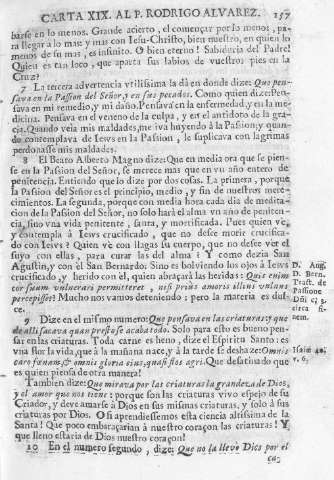 CARTA XIX. AL P. RODRIGO ALVAREZ. 157
barse en lo menos. Grande acierto, el començar por lo menos, pa-
ra llegar a lo mas y mas con Iesu-Christo, bien nuestro, en quien lo
menos de su mas, es infinito. O bien eterno! Sabiduria del Padre!
Quien es tan loco, que aparta sus labios de vuestros pies en la
Cruz?
7 La tercera advertencia vtilissima la dà en donde dize: Que pen-
sava en la Passion del Señor, y en sus pecados. Como quien dize: Pen-
sava en mi remedio, y mi daño. Pensava en la enfermedad, y en la me-
dicina. Pensava en el veneno de la culpa, y en el antidoto de la gra-
cia. Quando veia mis maldades, me iva huyendo à la Passion; y quan-
do contemplava de Iesvs en la Passion, le suplicava con lagrimas
perdonasse mis maldades.
8 El Beato Alberto Magno dize: Que en media ora que se pien-
se en la Passion del Señor, se merece mas que en vn año entero de
penitencia. Entiendo que lo dize por dos cosas. La primera, porque
la Passion del Señor es el principio, medio, y fin de nuestros mere-
cimientos. La segunda, porque con media hora cada dia de medita-
cion de la Passion del Señor, no solo harà el alma vn año de peniten-
cia, sino vna vida penitente, santa, y mortificada. Pues quien vè,
y contempla à Iesvs crucificado, que no desee morir crucifica-
do con Iesvs? Quien vè con llagas su cuerpo, que no desee ver el
suyo con ellas, para curar las del alma? Y como dezia San
Agustin, y con èl San Bernardo: Sino es bolviendo los ojos à Iesvs
crucificado, y herido con èl, quien abraçarà las heridas? Quis enim
cor suum vulnerari permitteret, nisi prius amoris illius vulnus
percepisset? Mucho nos vamos deteniendo; pero la materia es dul-
ce.
D. Aug.
D. Bern.
Tract. de
Passione
Dñi c; 
circa fi-
nem.
9 Dize en el mismo numero: Que pensaba en las criaturas; y que
de alli sacava quan presto se acaba todo. Solo para esto es bueno pen-
sar en las criaturas. Toda carne es heno, dize el Espiritu Santo: es
vna flor la vida, que à la mañana nace, y à la tarde se deshaze: Omnis
caro fœnum, & omnis gloria eius, quasi flos agri. Que desatinado que
es quien piensa de otra manera!
Isaiæ 40,
v. 6.
Tambien dize: Que mirava por las criaturas la grandeza de Dios,
y el amor que nos tiene: porque son las criaturas vivo espejo de su
Criador, y deve amarse à Dios en sus mismas criaturas, y solo à sus
criaturas por Dios. O si aprendiessemos esta ciencia altissima de la
Santa! Que poco embaraçarian à nuestro coraçon las criaturas! Y
que lleno estaria de Dios nuestro coraçon!
10 En el numero segundo, dize: Que no la llevò Dios por el